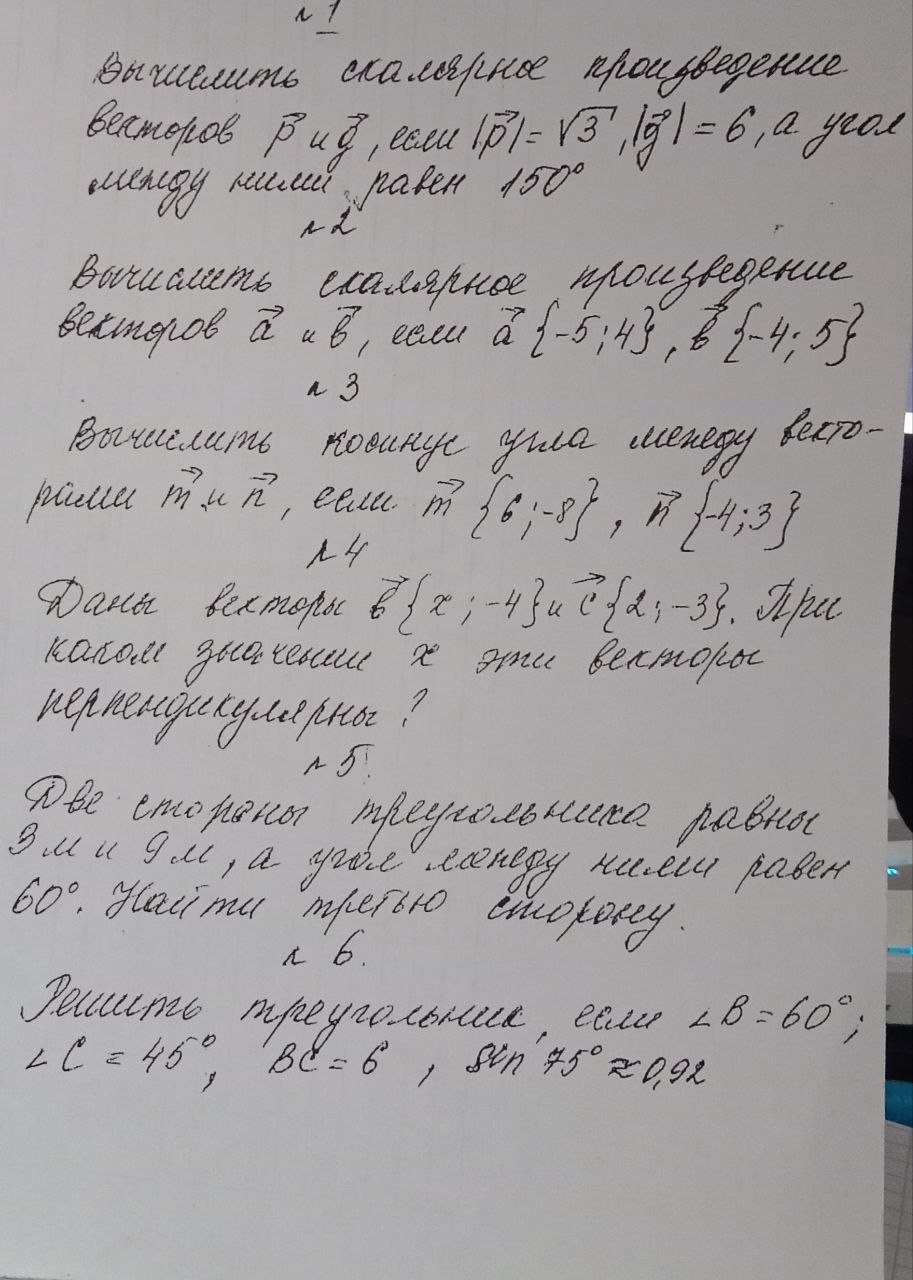 № 1
Вычислить скалярное произведение
векторов p⃗ и q⃗, если |p⃗| = √3, |q⃗| = 6, а угол
между ними равен 150°
№ 2
Вычислить скалярное произведение
векторов a⃗ и b⃗, если a⃗ {-5; 4}, b⃗ {-4; 5}
№ 3
Вычислить косинус угла между векто-
рами m⃗ и n⃗, если m⃗ {6; -8}, n⃗ {-4; 3}
№ 4
Даны векторы b⃗ {x; -4} и c⃗ {2; -3}. При
каком значении x эти векторы
перпендикулярны?
№ 5.
Две стороны треугольника равны
3 м и 9 м, а угол между ними равен
60°. Найти третью сторону.
№ 6.
Решить треугольник, если ∠B = 60°;
∠C = 45°, BC = 6, sin 75° ≈ 0,92